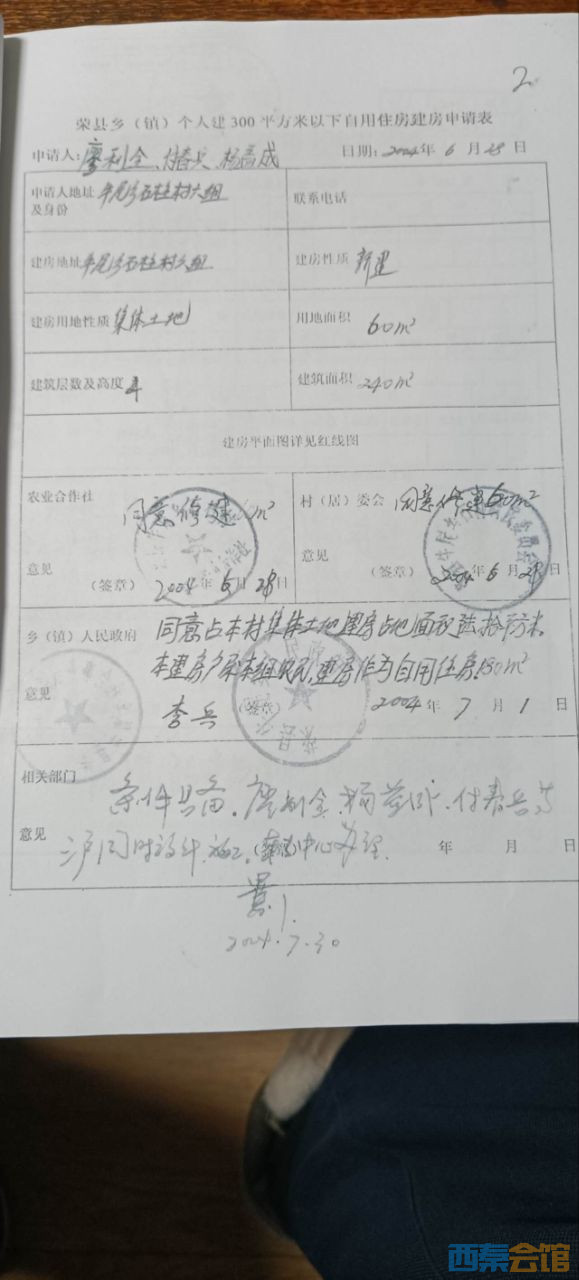 2
荣县乡（镇）个人建300平方米以下自用住房建房申请表
申请人：廖利全、付春兵 杨 成 日期：2004年6月28日
申请人地址及身份 石柱村六组 联系电话
建房地址 石柱村六组 建房性质 新建
建房用地性质 集体土地 用地面积 60m²
建筑层数及高度 4 建筑面积 240m²
建房平面图详见红线图
农业合作社 同意修建 m² 村（居）委会 同意修建60m²
意见 （签章） 2004年6月28日 意见 （签章） 2004年6月28日
乡（镇）人民政府 同意占本村集体土地建房占地面积陆拾平方米。
本建房户系本组农民，建房作为自用住房 m²
意见 李兵 （签章） 2004年7月1日
相关部门 条件具备。廖利全、杨 、付春兵等
意见 户同时设计、施工。 中心办理. 年 月 日
2004.7.30
西秦会馆